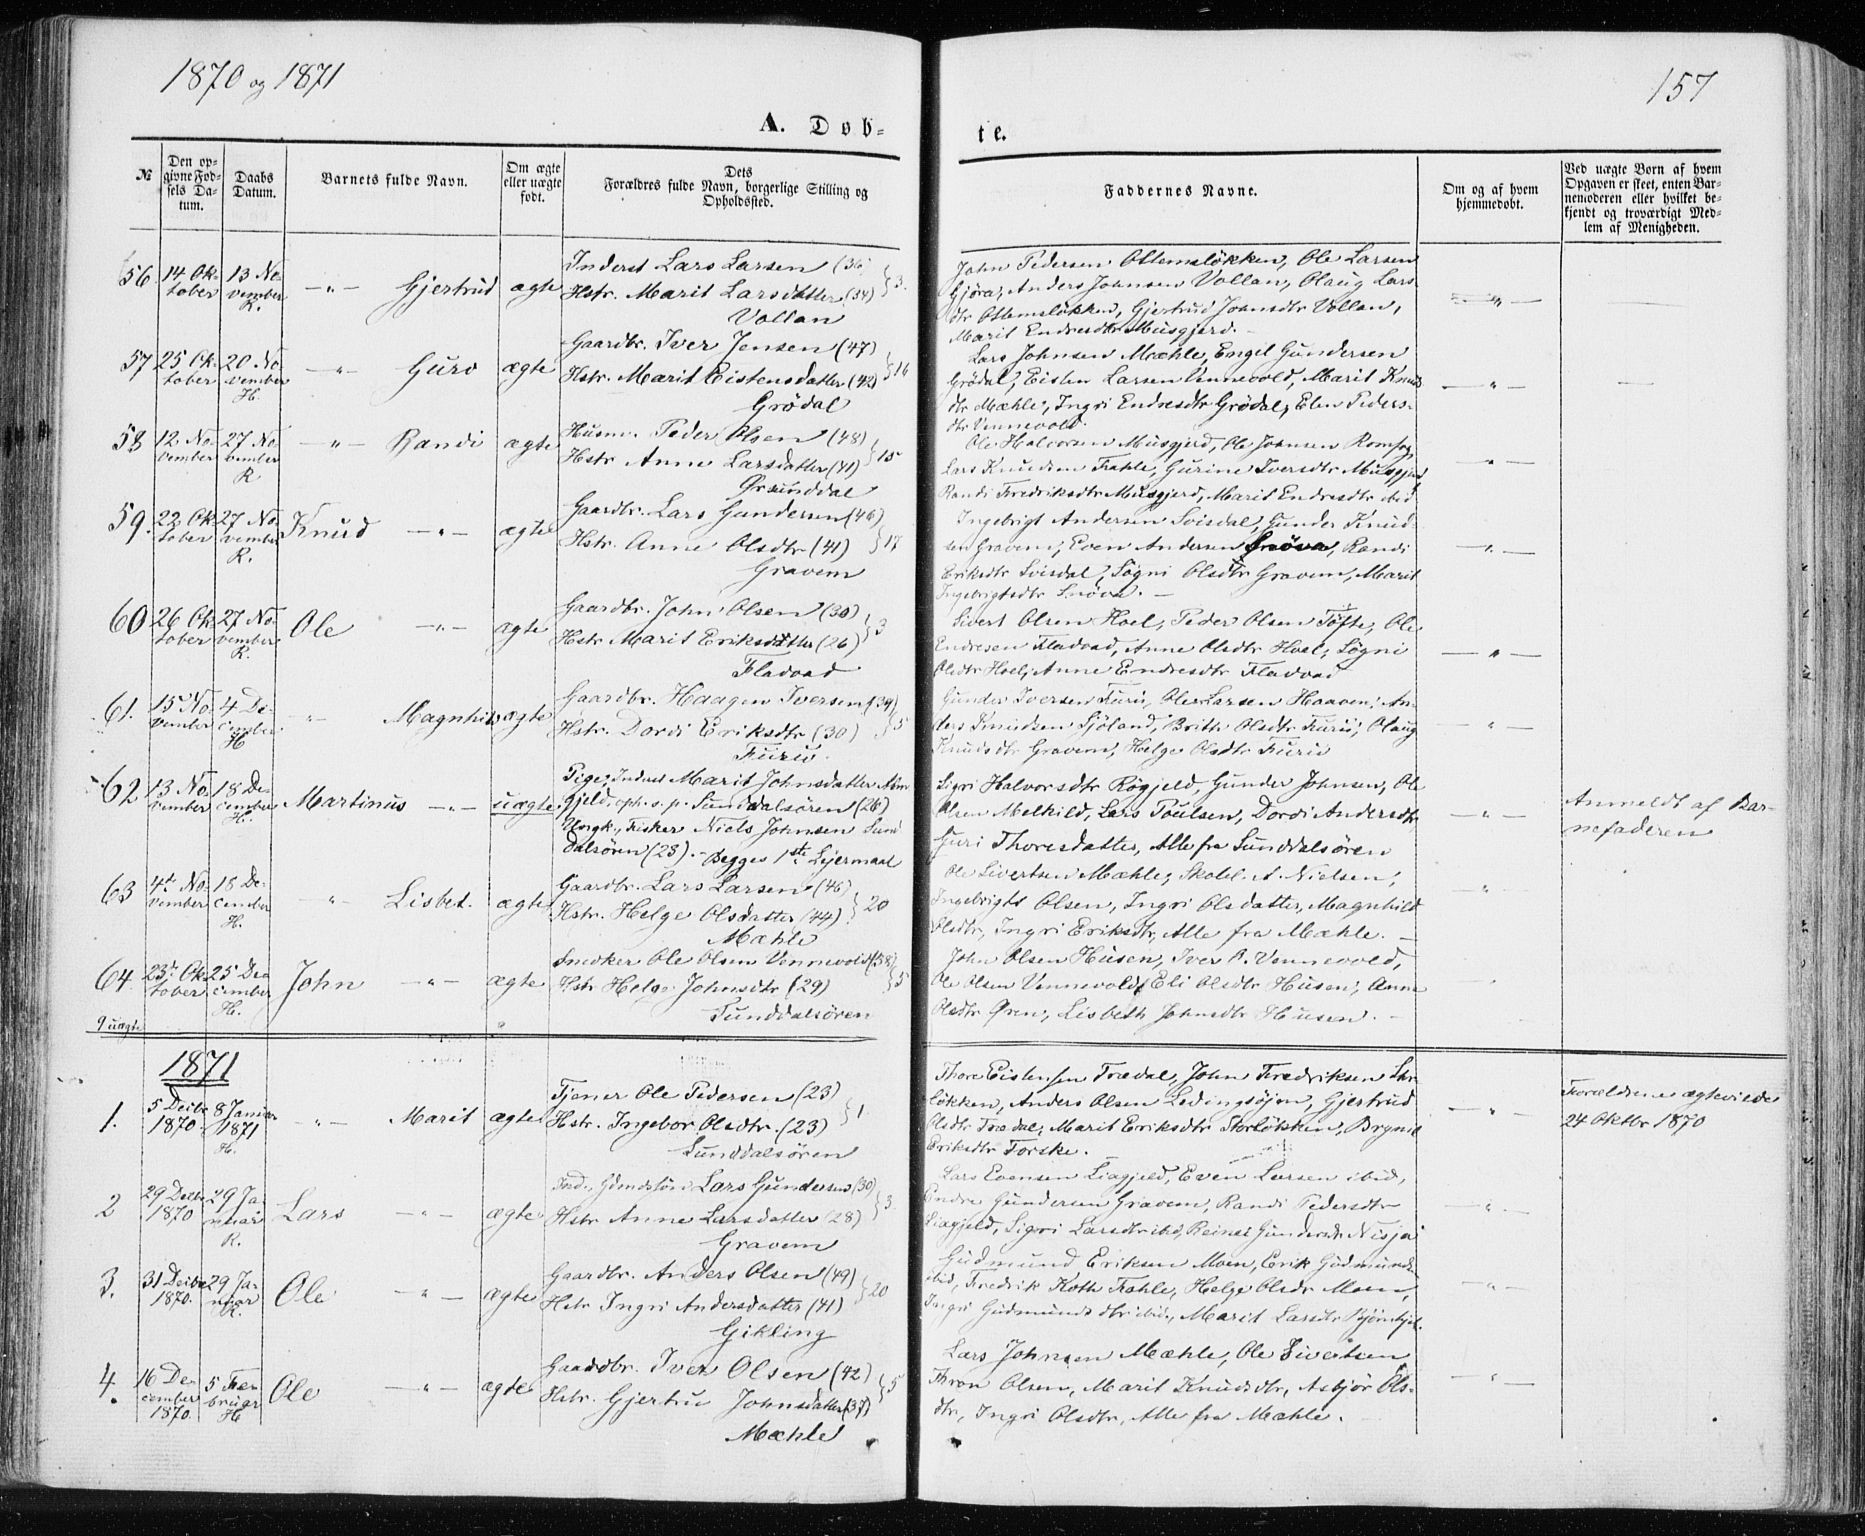 1870 og 1871
157
A. Døb-
te.
№
Den op-
givne Fød-
sels Da-
tum.
Daabs
Datum.
Barnets fulde Navn.
Om ægte
eller uægte
født.
Dets
Forældres fulde Navn, borgerlige Stilling og
Opholdssted.
Faddernes Navne.
Om og af hvem
hjemmedøbt.
Ved uægte Børn af hvem
Opgaven er skeet, enten Bar-
nemoderen eller hvilket be-
kjendt og troværdigt Med-
lem af Menigheden.
56
14 Ok-
tober
13 No-
vember
R.
— " —
Gjertrud
ægte
Inderst Lars Larsen (36)
Hstr. Marit Larsdatter (34) } 3.
Vollan
John Pedersen Ottemsløkken, Ole Larsen
Gjøra, Anders Johnsen Vollan, Olaug Lars-
dtr Ottemsløkken, Gjertrud Johnsdtr Vollan,
Marit Endresdtr Musgjerd. —
— " —
57
25 Ok-
tober
20 No-
vember
H
— " —
Guro
ægte
Gaardbr. Iver Jensen (47)
Hstr. Marit Eistensdatter (42) } 16
Grödal
Lars Johnsen Mæhle, Engel Gundersen
Grödal, Eisten Larsen Vennevold, Marit Knuds
dtr Mæhle, Ingri Endresdtr Grödal, Elen Peders-
dtr Vennevold.
— " —
58
12 No-
vember
27 No-
vember
R
— " —
Randi
ægte
Husm. Peder Olsen (48)
Hstr Anne Larsdatter (41) } 15
Grunddal
Ole Halvorsen Musgjerd, Ole Johnsen Romfog,
Lars Knudsen Fahle, Gurine Iversdtr Musgjerd
Randi Fredriksdtr Musgjerd, Marit Endresdtr ibid.
— " —
59.
22 Ok-
tober
27 No-
vember
R.
Knud
— " —
ægte
Gaardbr. Lars Gundersen (46)
Hstr. Anne Olsdtr (41) } 17
Gravem
Ingebrigt Andersen Svisdal, Gunder Knud-
sen Gravem, Even Andersen Snöva, Randi
Eriksdtr Svisdal, Sögni Olsdtr Gravem, Marit
Ingebrigtsdtr Snöva. —
— " —
60
26 Ok-
tober
27 No-
vember
R.
Ole
— " —
ægte
Gaardbr. John Olsen (30)
Hstr Marit Eriksdatter (26) } 3
Fladvad
Sivert Olsen Hoel, Peder Olsen Töfte, Ole
Endresen Fladvad, Anne Olsdtr Hoel, Sögni
Olsdtr Hoel, Anne Endresdtr Fladvad
— " —
61.
15 No-
vember
4 De-
cember
H
— " —
Magnhild
ægte
Gaardbr. Haagen Iversen (34)
Hstr. Dordi Eriksdtr (30) } 5
Furu.
Gunder Iversen Furu, Ole Larsen Haaven, An-
ders Knudsen Sjöland, Britt Olsdtr Furu, Olaug
Knudsdtr Gravem, Helge Olsdtr Furu
— " —
62
13 No-
vember
18 De-
cember
H.
Martinus
— " —
uægte
Pige, Inderst Marit Johnsdatter Alm
gjeld, oph. s. p. Sunddalsören (26)
Ungk., Fisker Niels Johnsen Sund
dalsören (28). — Begges 1ste Lejermaal
Sigri Halvorsdtr Rögjeld, Gunder Johnsen, Ole
Olsen Melkild, Lars Poulsen, Dordi Andersdtr
Guri Thoresdatter, Alle fra Sunddalsören
— " —
Anmeldt af Bar-
nefaderen
63
4de No-
vember
18 De-
cember
H.
— " —
Lisbet.
ægte
Gaardbr. Lars Larsen (46)
Hstr. Helge Olsdatter (44) } 20
Mæhle
Ole Sivertsen Mæhle, Skohl. A. Nielsen,
Ingebrigt Olsen, Ingri Olsdatter, Magnhild
Olsdtr, Ingri Eriksdtr, Alle fra Mæhle. —
— " —
64
23de Ok-
tober
25 De-
cember
H.
John
— " —
ægte
Snedker Ole Olsen Vennevold (38)
Hstr Helge Johnsdtr (29) } 5
Sunddalsören
John Olsen Husen, Iver O. Vennevold,
Ole Olsen Vennevold, Eli Olsdtr Husen, Anne
Olsdtr Øren, Lisbeth Johnsdtr Husen. —
9 uægte
1871
1.
5 Decbr
1870
8 Januar
1871
H.
— " —
Marit
ægte
Tjener Ole Pedersen (23)
Hstr. Ingebor Olsdtr. (23) } 1
Sunddalsören
Thore Eistensen Trædal, John Fredriksen Stor
løkken, Anders Olsen Ledingsøjen, Gjertrud
Olsdtr Trædal, Marit Eriksdtr Storløkken, Brynil
Eriksdtr Forske.
— " —
Forældrene ægteviede
24 Oktbr 1870
2
29 Decbr
1870
29 Ja-
nuar
R.
Lars
— " —
ægte
Ind., Gdmdsön Lars Gundersen (30)
Hstr Anne Larsdatter (28) } 3
Gravem
Lars Evensen Liagjeld, Even Larsen ibid,
Endre Gundersen Gravem, Randi Pedersdtr
Liagjeld, Sigri Larsdtr ibid, Reinet Gundersdtr Nisja
— " —
3.
31 Decbr
1870.
29 Ja-
nuar
R.
Ole
— " —
ægte
Gaardbr. Anders Olsen (49)
Hstr Ingri Andersdatter (41) } 20
Gikling
Gudmund Eriksen Moen, Erik Gudmunds
ibid, Fredrik Koth Fahle, Helge Olsdr Moen,
Ingri Gudmundsdtr ibid., Marit Larsdtr Bjørnhjel.
— " —
4.
16 De-
cember
1870.
5 Feb-
bruar
H
Ole
— " —
ægte
Gaardbr. Iver Olsen (42)
Hstr. Gjertru Johnsdatter (37) } 5
Mæhle
Lars Johnsen Mæhle, Ole Sivertsen
Thron Olsen, Marit Knudsdtr, Asbjør Ols-
dtr, Ingri Olsdtr, Alle fra Mæhle.
— " —